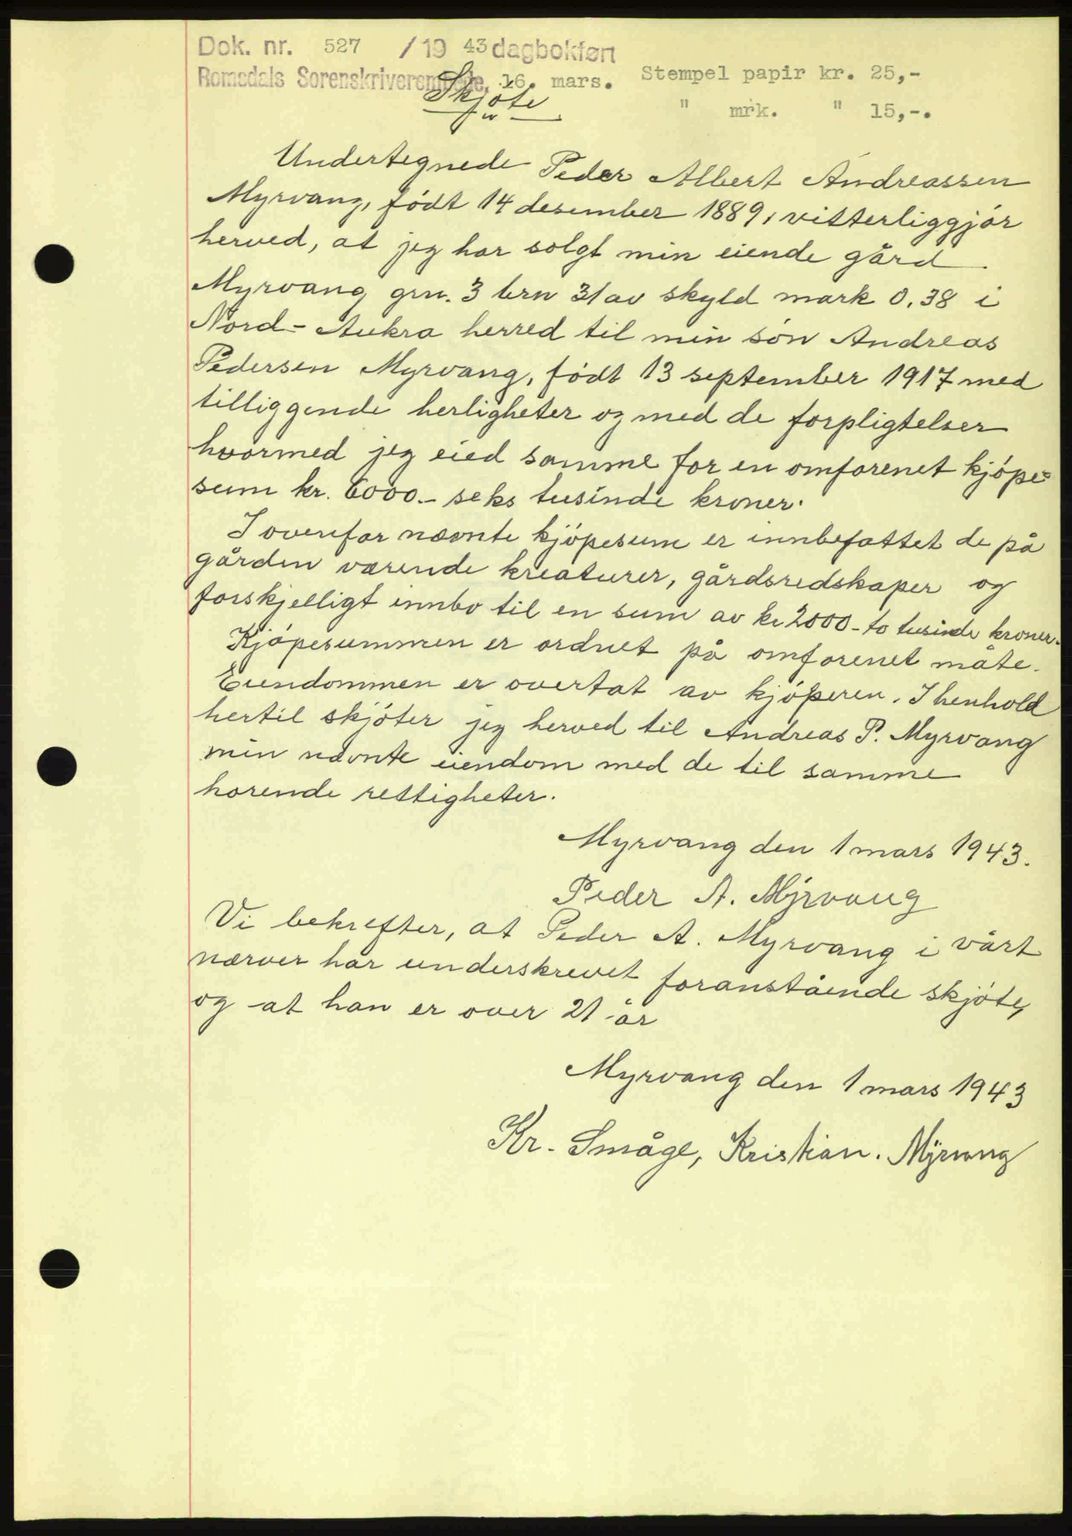 Dok. nr. 527 / 19 43 dagbokført
Romsdals Sorenskriverembede, 16. mars. Stempel papir kr. 25,-
" mrk. " 15,-.
Skjöte
Undertegnede Peder Albert Andreassen
Myrvang, födt 14 desember 1889, vitterliggjör
herved, at jeg har solgt min eiende gård
Myrvang grn. 3 brn 31 av skyld mark 0,38 i
Nord-Aukra herred til min sön Andreas
Pedersen Myrvang, födt 13 september 1917 med
tilliggende herligheter og med de forpligtelser
hvormed jeg eied samme for en omforenet kjöpe=
sum kr. 6000.- seks tusinde kroner.
I ovenfor nævnte kjöpesum er innbefattet de på
gården værende kreaturer, gårdsredskaper og
forskjelligt innbo til en sum av kr 2000- to tusinde kroner.
Kjöpesummen er ordnet på omforenet måte.
Eiendommen er overtat av kjöperen. I henhold
hertil skjöter jeg herved til Andreas P. Myrvang
min nævnte eiendom med de til samme
horende rettigheter.
Myrvang den 1 mars 1943.
Peder A. Myrvang
Vi bekrefter, at Peder A. Myrvang i vårt
nærver har underskrevet foranstående skjöte,
og at han er over 21 år
Myrvang den 1 mars 1943
Kr. Småge, Kristian. Myrvang